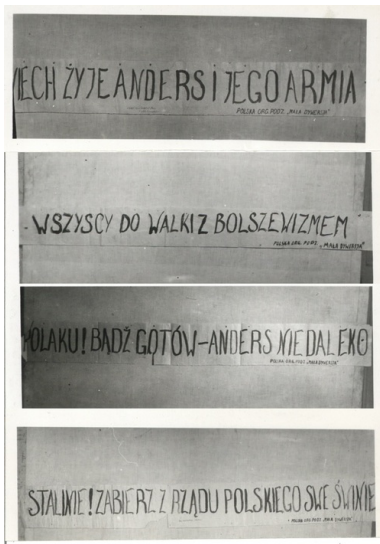 IECH ŻYJE ANDERS I JEGO ARMIA
POLSKA ORG. PODZ. „MAŁA DYWERSJA"
WSZYSCY DO WALKI Z BOLSZEWIZMEM
POLSKA ORG. PODZ. „MAŁA DYWERSJA"
POLAKU! BĄDŹ GOTÓW – ANDERS NIEDALEKO
POLSKA ORG. PODZ. „MAŁA DYWERSJA"
STALINIE! ZABIERZ Z RZĄDU POLSKIEGO SWE ŚWINIE
POLSKA ORG. PODZ. „MAŁA DYWERSJA"